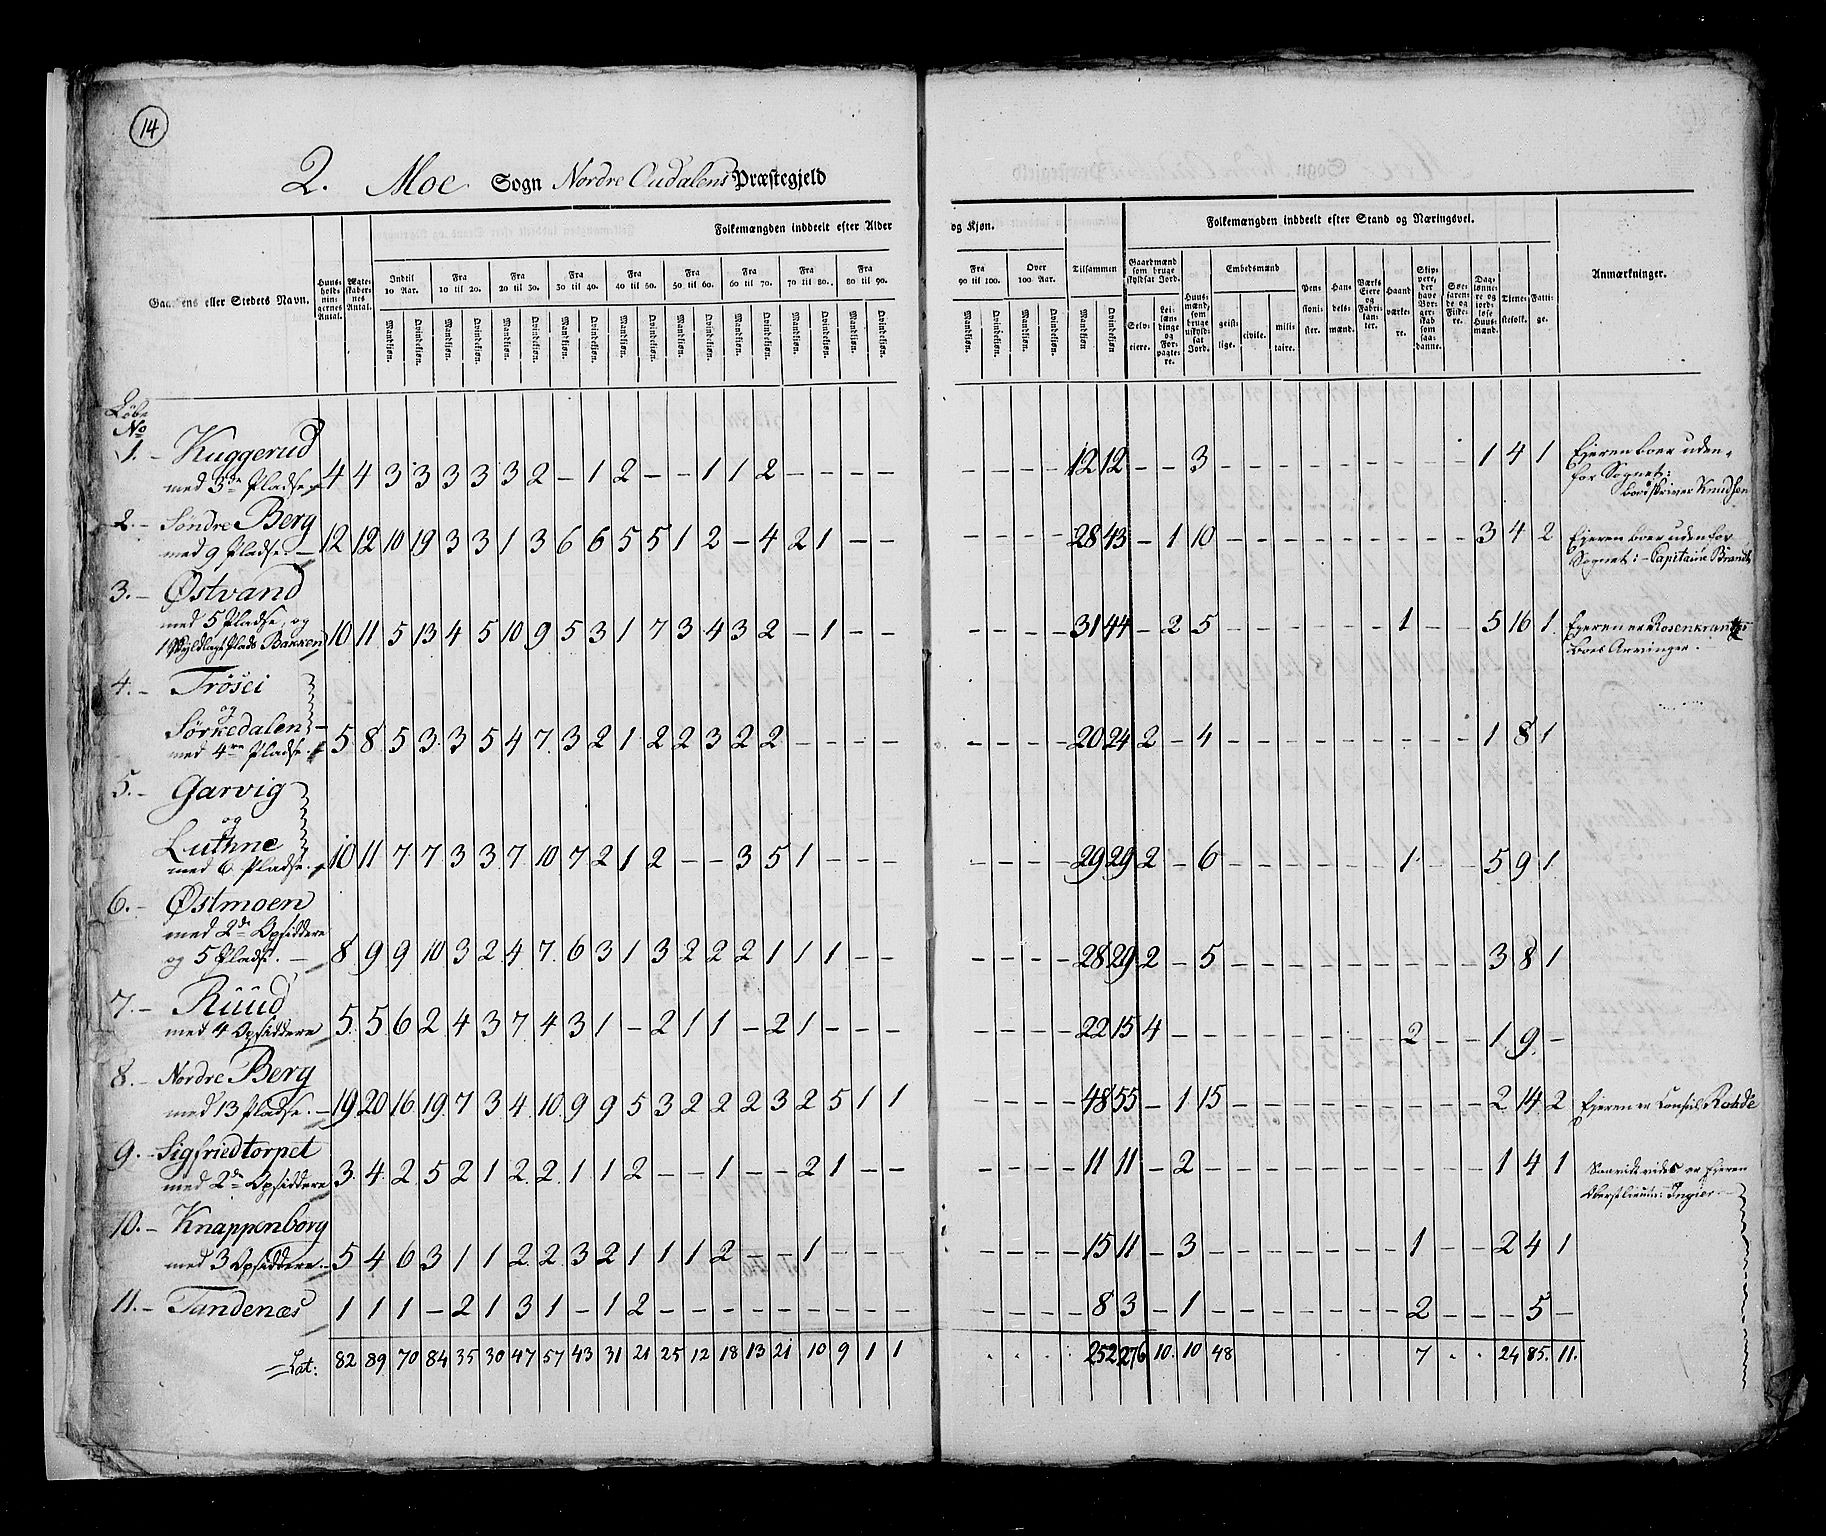 14
2. Moe Sogn Nordre Oudalens Præstegjeld
Folkemængden inddeelt efter Alder og Kjøn. Tilsammen Folkemængden inddeelt efter Stand og Næringsvei.
Gaardens eller Stedets Navn. Huusholdningernes Antal. Ægteskabernes Antal. Indtil 10 Aar. Fra 10 til 20. Fra 20 til 30. Fra 30 til 40. Fra 40 til 50. Fra 50 til 60. Fra 60 til 70. Fra 70 til 80. Fra 80 til 90. Fra 90 til 100. Over 100 Aar. Gaardmænd som bruge skyldsat Jord. Huusmænd, som bruge uskyldsat Jord. Embedsmænd Pensionister. Handelsmænd. Værks Eiere og Fabrikanter. Haandværkere. Skippere, der have Borgerskab som saadanne. Søefarende og Fiskere. Daglønnere og jordløse Huusmænd. Tjenestefolk. Fattige. Anmærkninger.
Mandkiøn. Qvindekiøn. Mandkiøn. Qvindekiøn. Mandkiøn. Qvindekiøn. Mandkiøn. Qvindekiøn. Mandkiøn. Qvindekiøn. Mandkiøn. Qvindekiøn. Mandkiøn. Qvindekiøn. Mandkiøn. Qvindekiøn. Mandkiøn. Qvindekiøn. Mandkiøn. Qvindekiøn. Mandkiøn. Qvindekiøn. Mandkiøn Qvindekiøn. Selveiere. Leilændinge og Forpagtere. geistlige. civile. militaire.
Løbe
No
1. - Kuggerud Ejeren boer uden-
med 3de Pladse 4 4 3 3 3 3 3 2 - 1 2 - - 1 1 2 - - - - - - - - 12 12 - - 3 - - - - - - - - - 1 4 1 for Sognet:
Knudsen
2. - Søndre Berg
med 9 Pladse. - 12 12 10 19 3 3 1 3 6 6 5 5 1 2 - 4 2 1 - - - - - - 28 43 - 1 10 - - - - - - - - - 3 4 2 Ejeren boer udenfor
Sognet: - Capitain Brandt
3. - Østvand
med 5 Pladse, og
1 Skyldlagt Plads Bakken 10 11 5 13 4 5 10 9 5 3 1 7 3 4 3 2 - 1 - - - - - - 31 44 - 2 5 - - - - - - 1 - - 5 16 1 Ejeren er Rosenkrantzes
Boes Arvinger.
4. - Trøsei
og
Sørkedalen
med 4re Pladse. 5 8 5 3 3 5 4 7 3 2 1 2 2 3 2 2 - - - - - - - - 20 24 2 - 4 - - - - - - - - - 1 8 1
5. - Garvig
og
Luthne
med 6 Pladse. 10 11 7 7 3 3 7 10 7 2 1 2 - - 3 5 1 - - - - - - - 29 29 2 - 6 - - - - - - 1 - - 5 9 1
6. - Østmoen
med 2de Opsiddere
og 5 Pladse. - 8 9 9 10 3 2 4 7 6 3 1 3 2 2 2 1 1 1 - - - - - - 28 29 2 - 5 - - - - - - - - - 3 8 1
7. - Ruud
med 4 Opsiddere 5 5 6 2 4 3 7 4 3 1 - 2 1 1 - 2 1 - - - - - - - 22 15 4 - - - - - - - - 2 - - 1 9 -
8. - Nordre Berg
med 13 Pladse. - 19 20 16 19 7 3 4 10 9 9 5 3 2 2 2 3 2 5 1 1 - - - - 48 55 - 1 15 - - - - - - - - - 2 14 2 Ejeren er Consul
9. - Sigfriedtorpet
med 2de Opsiddere 3 4 2 5 2 1 2 2 1 1 2 - - 1 - - 2 1 - - - - - - 11 11 - 2 - - - - - - - - - - 1 4 1 Saavidt vides er Ejeren
Oberstlieutn: Ingier
10. - Knappenborg
med 3 Opsiddere. - 5 4 6 3 1 1 2 2 3 2 1 1 1 2 - - 1 - - - - - - - 15 11 - 3 - - - - - - - 1 - - 2 4 1
11. - Tandenæs 1 1 1 - 2 1 3 1 - 1 2 - - - - - - - - - - - - - 8 3 - 1 - - - - - - - 2 - - - 5 -
Lat: 82 89 70 84 35 30 47 57 43 31 21 25 12 18 13 21 10 9 1 1 . . . . 252 276 10. 10 48 7 . . 24 85. 11.